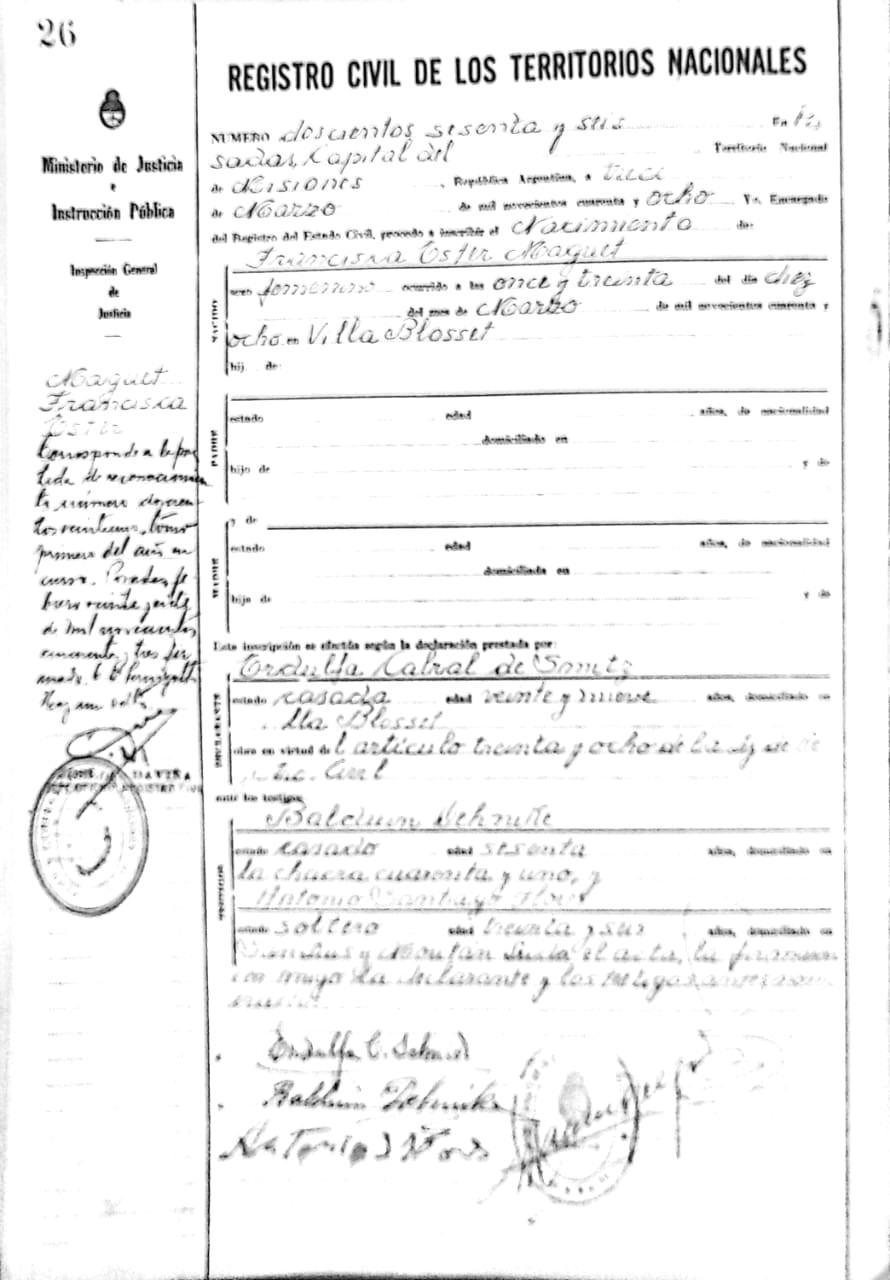 26
REGISTRO CIVIL DE LOS TERRITORIOS NACIONALES
Ministerio de Justicia
e
Instrucción Pública
Inspección General
de
Justicia
Maquet
Francisca
Ester
Corresponde a la par
tida de reconocimien
to número doscien
tos veintiuno, tomo
primero del año en
curso. Posadas, fe
brero veinte y siete
de mil novecientos
cincuenta y tres
NUMERO doscientos sesenta y seis En Po,
sadas, Capital del Territorio Nacional
de Misiones, República Argentina, a trece
de Marzo de mil novecientos cuarenta y ocho Yo, Encargado
del Registro del Estado Civil, procedo a inscribir el Nacimiento de:
Francisca Ester Maquet
sexo femenino ocurrido a las once y treinta del día diez
del mes de Marzo de mil novecientos cuarenta y
ocho en Villa Blosset
hij de
PADRE
estado edad años, de nacionalidad
domiciliado en
hijo de y de
MADRE
y de
estado edad años, de nacionalidad
domiciliada en
hijo de y de
Esta inscripción se efectúa según la declaración prestada por:
Ordulfa Cabral de
DECLARANTE
estado casada edad veinte y nueve años, domiciliado en
lla Blosset
obra en virtud del artículo treinta y ocho de la
ante los testigos
Balduin
estado casado edad sesenta años, domiciliado en
la chacra cuarenta y uno, y
Antonio Santiago Flores
estado soltero edad treinta y seis años, domiciliado en
y Leida el acta, la firmaron
conmigo la declarante y los testigos
Ordulfa C.
Balduin
Antonio S Flores